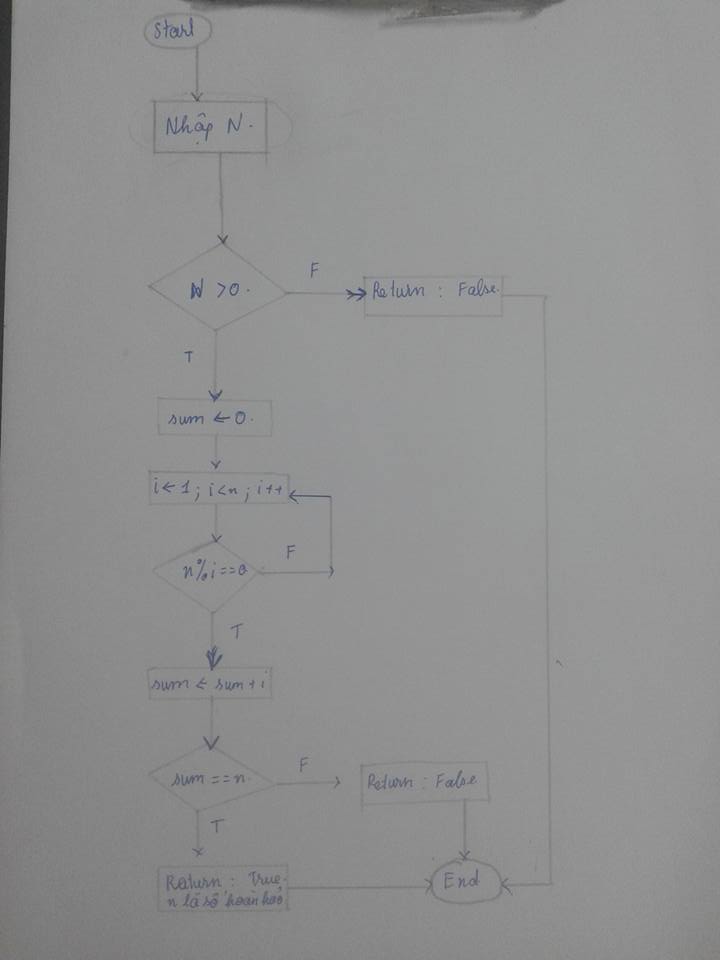 Start
Nhập N.
N >0.
F
Return : False.
T
sum ← 0.
i ← 1 ; i<n ; i++
n%i==0
F
T
sum ← sum + i
sum == n.
F
Return : False
T
Return : True.
n là số hoàn hảo
End